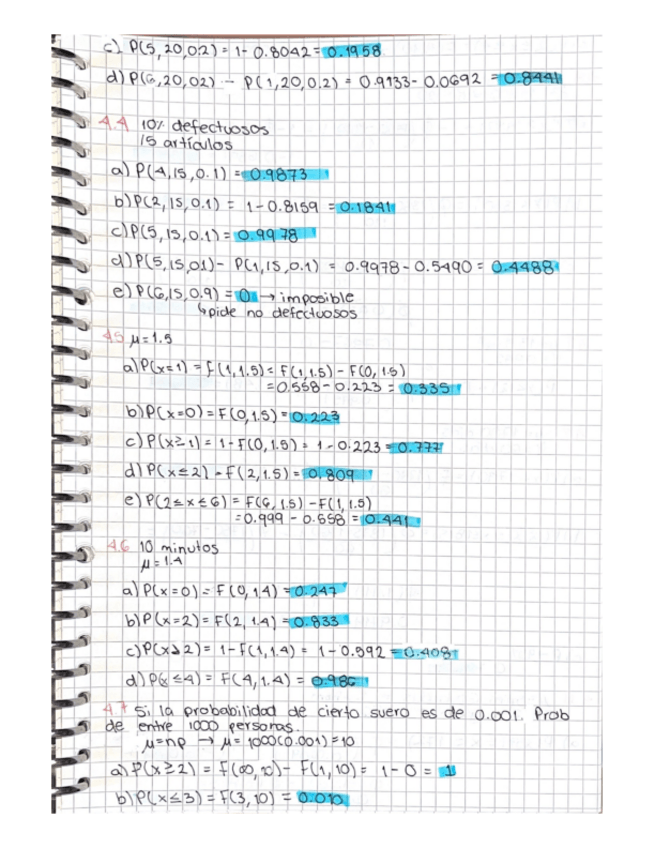 c) P(5,20,0.2) = 1 - 0.8042 = 0.1958
d) P(6,20,02) - P(1,20,0.2) = 0.9133 - 0.0692 = 0.8441
4.4 10% defectuosos
15 artículos
a) P(4,15,0.1) = 0.9873
b) P(2,15,0.1) = 1 - 0.8159 = 0.1841
c) P(5,15,0.1) = 0.9978
d) P(5,15,01) - P(1,15,0.1) = 0.9978 - 0.5490 = 0.4488
e) P(6,15,0.9) = 0 → imposible
↳ pide no defectuosos
4.5 μ = 1.5
a) P(x=1) = f(1,1.5) = F(1,1.5) - F(0,1.5)
= 0.558 - 0.223 = 0.335
b) P(x=0) = F(0,1.5) = 0.223
c) P(x≥1) = 1 - F(0,1.5) = 1 - 0.223 = 0.777
d) P(x≤2) = F(2,1.5) = 0.809
e) P(2≤x≤6) = F(6,1.5) - F(1,1.5)
= 0.999 - 0.558 = 0.441
4.6 10 minutos
μ = 1.4
a) P(x=0) = F(0,1.4) = 0.247
b) P(x=2) = F(2,1.4) = 0.833
c) P(x≥2) = 1 - F(1,1.4) = 1 - 0.592 = 0.408
d) P(x≤4) = F(4,1.4) = 0.986
4.7 Si la probabilidad de cierto suero es de 0.001. Prob
de entre 1000 personas.
μ = np → μ = 1000(0.001) = 10
a) P(x≥2) = f(∞,10) - F(1,10) = 1 - 0 = 1
b) P(x≤3) = F(3,10) = 0.010